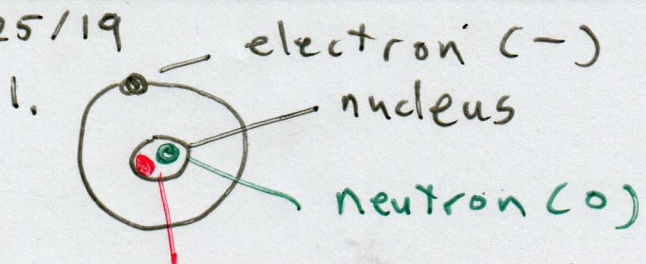 25/19
electron (-)
1.
nucleus
neutron (0)